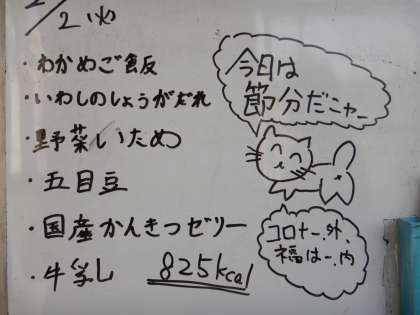 2/2(火)
・わかめご飯
・いわしのしょうがだれ
・野菜いため
・五目豆
・国産かんきつゼリー
・牛乳 825kcal
今日は
節分だニャー
コロナー、外、
福はー、内